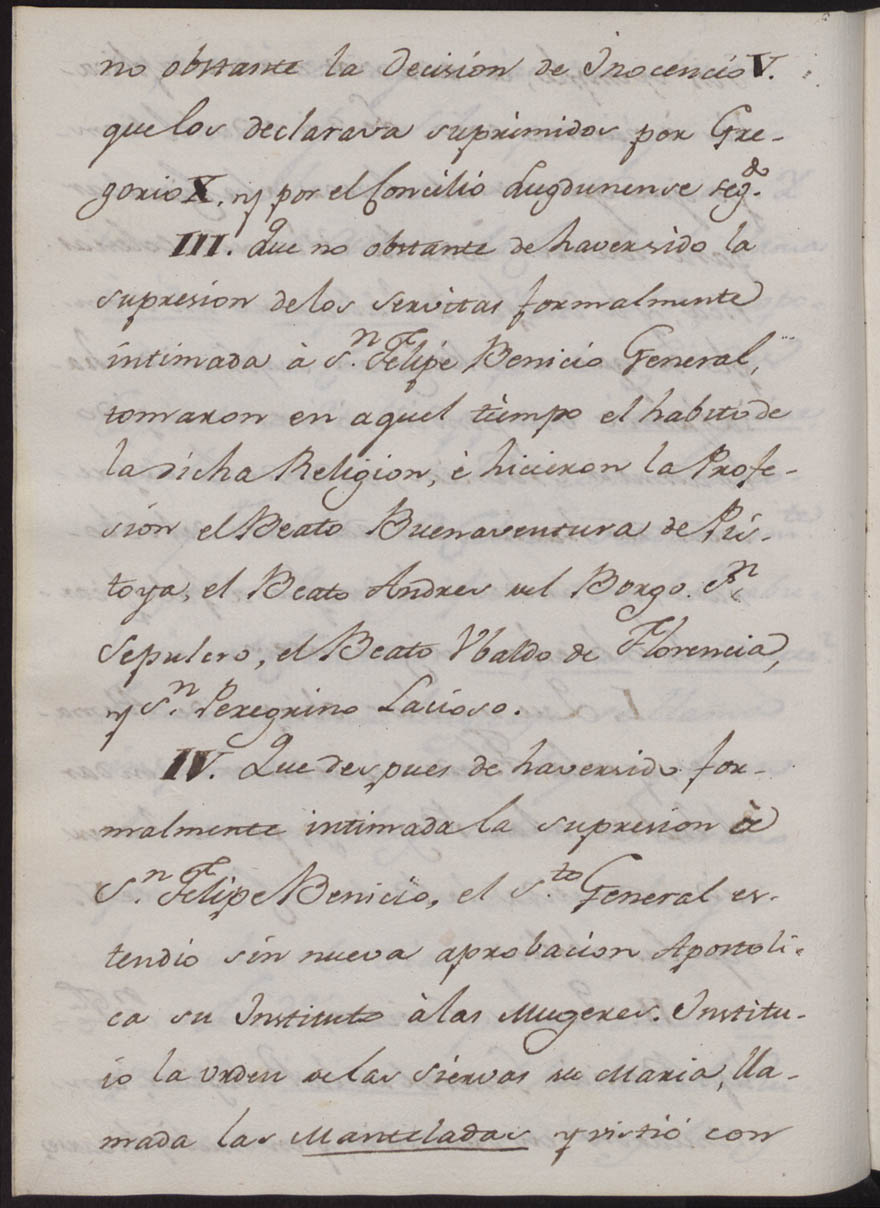 no obstante la decision de Inocencio V.
que los declarava suprimidos por Gre-
gorio X. y por el Concilio Lugdunense seg.do
III. Que no obstante de haver sido la
supresion de los Servitas formalmente
intimada à S.n Felipe Benicio General,
tomaron en aquel tiempo el habito de
la dicha Religion, è hicieron la Profe-
sion el Beato Buenaventura de Pis-
toya, el Beato Andres del Borgo. S.n
Sepulcro, el Beato Vbaldo de Florencia,
y S.n Peregrino Lacioso.
IV. Que despues de haver sido for-
malmente intimada la supresion à
S.n Felipe Benicio, el S.to General es-
tendio sin nueva aprobacion Apostoli-
ca su Instituto à las Mugeres. Institu-
io la orden de las Siervas de Maria, lla-
mada las Manteladas y vistió con